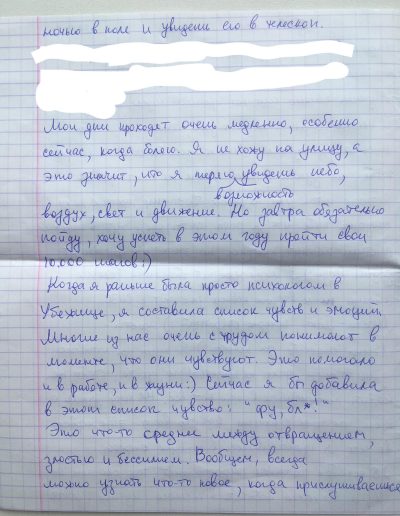 ночью в поле и увидели его в телескоп.
Мои дни проходят очень медленно, особенно
сейчас, когда болею. Я не хожу на улицу, а
это значит, что я теряю увидеть небо,
возможность
воздух, свет и движение. Но завтра обязательно
пойду, хочу успеть в этом году пройти свои
10.000 шагов:)
Когда я раньше была просто психологом в
Убежище, я составила список чувств и эмоций.
Многие из нас очень с трудом понимают в
моменте, что они чувствуют. Это помогало
и в работе, и в жизни:) Сейчас я бы добавила
в этот список чувство: "фу, бл*!"
Это что-то среднее между отвращением,
злостью и бессилием. Вообщем, всегда
можно узнать что-то новое, когда прислушиваешься